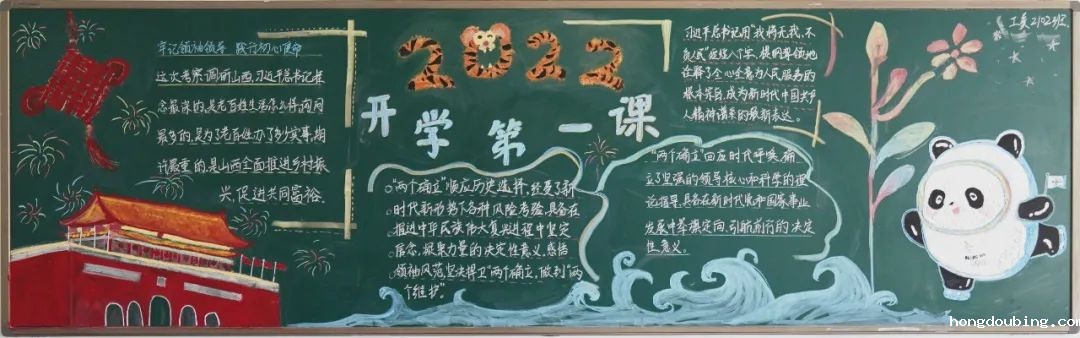 牢记领袖领导 践行初心使命
这次考察调研山西,习近平总书记挂
念最深的,是老百姓生活怎么样,询问
最多的,是为了老百姓办了多少实事,相
许最重的,是山西全面推进乡村振
兴,促进共同富裕.
2022
开学第一课
"两个确立"顺应历史选择,经受了新
时代新形势下各种风险考验,具备在
推进中华民族伟大复兴进程中坚定
信念、凝聚力量的决定性意义,感悟
领袖风范坚决捍卫"两个确立",做到"两
个维护"。
习近平书记用"我将无我,不
负人民"这短八个字,提纲挈领地
诠释了全心全意为人民服务的
根本宗旨,成为新时代中国共产
人精神谱系的最新表达。
"两个确立"回应时代呼唤,确
立了坚强的领导核心和科学的理
论指导,具备在新时代党和国家事业
发展中举旗定向、引航前行的决定
性意义。
工美2102班
hongdoubing.com